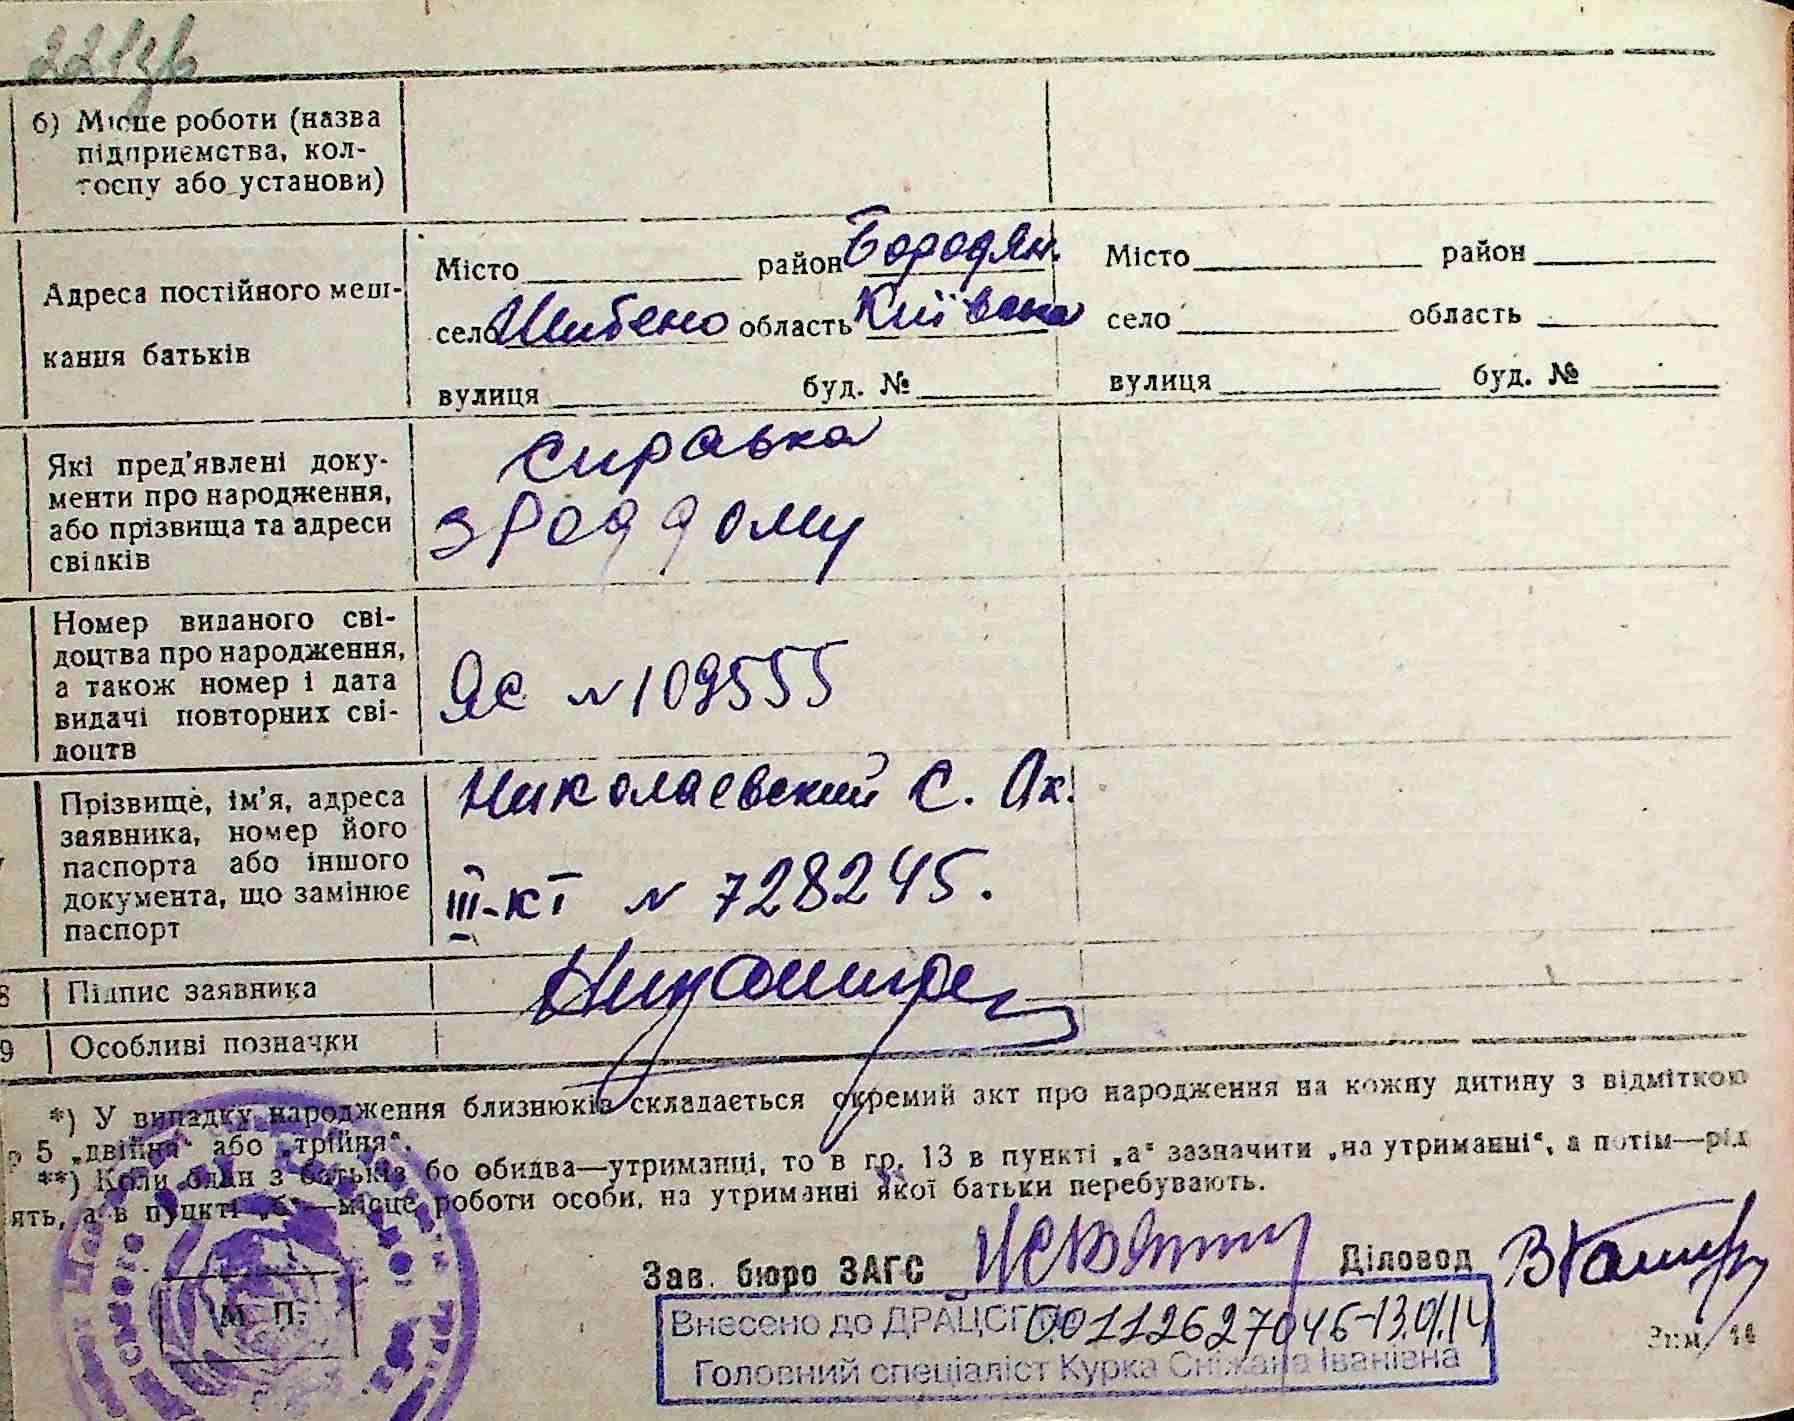 б) Місце роботи (назва
підприємства, кол-
госпу або установи)
Адреса постійного меш-
кання батьків
Місто район Бородян.
село Шибено область Київська
вулиця буд. №
Місто район
село область
вулиця буд. №
Які пред'явлені доку-
менти про народження,
або прізвища та адреси
свідків
справка
з роддому
Номер виданого сві-
доцтва про народження,
а також номер і дата
видачі повторних сві-
доцтв
ЯС № 109555
Прізвище, ім'я, адреса
заявника, номер його
паспорта або іншого
документа, що замінює
паспорт
Николаевский С. Ак.
III-КТ № 728245.
8 Підпис заявника
9 Особливі позначки
*) У випадку народження близнюків складається окремий акт про народження на кожну дитину з відміткою
р 5 „двійня“ або „трійня“.
**) Коли один з батьків бо обидва—утриманці, то в гр. 13 в пункті „а“ зазначити „на утриманні“, а потім—рід
ять, а в пункті „б“—місце роботи особи, на утриманні якої батьки перебувають.
Зав. бюро ЗАГС Діловод
М. П.
Внесено до ДРАЦСГ 00112627046-13.01.14
Головний спеціаліст Курка Сніжана Іванівна